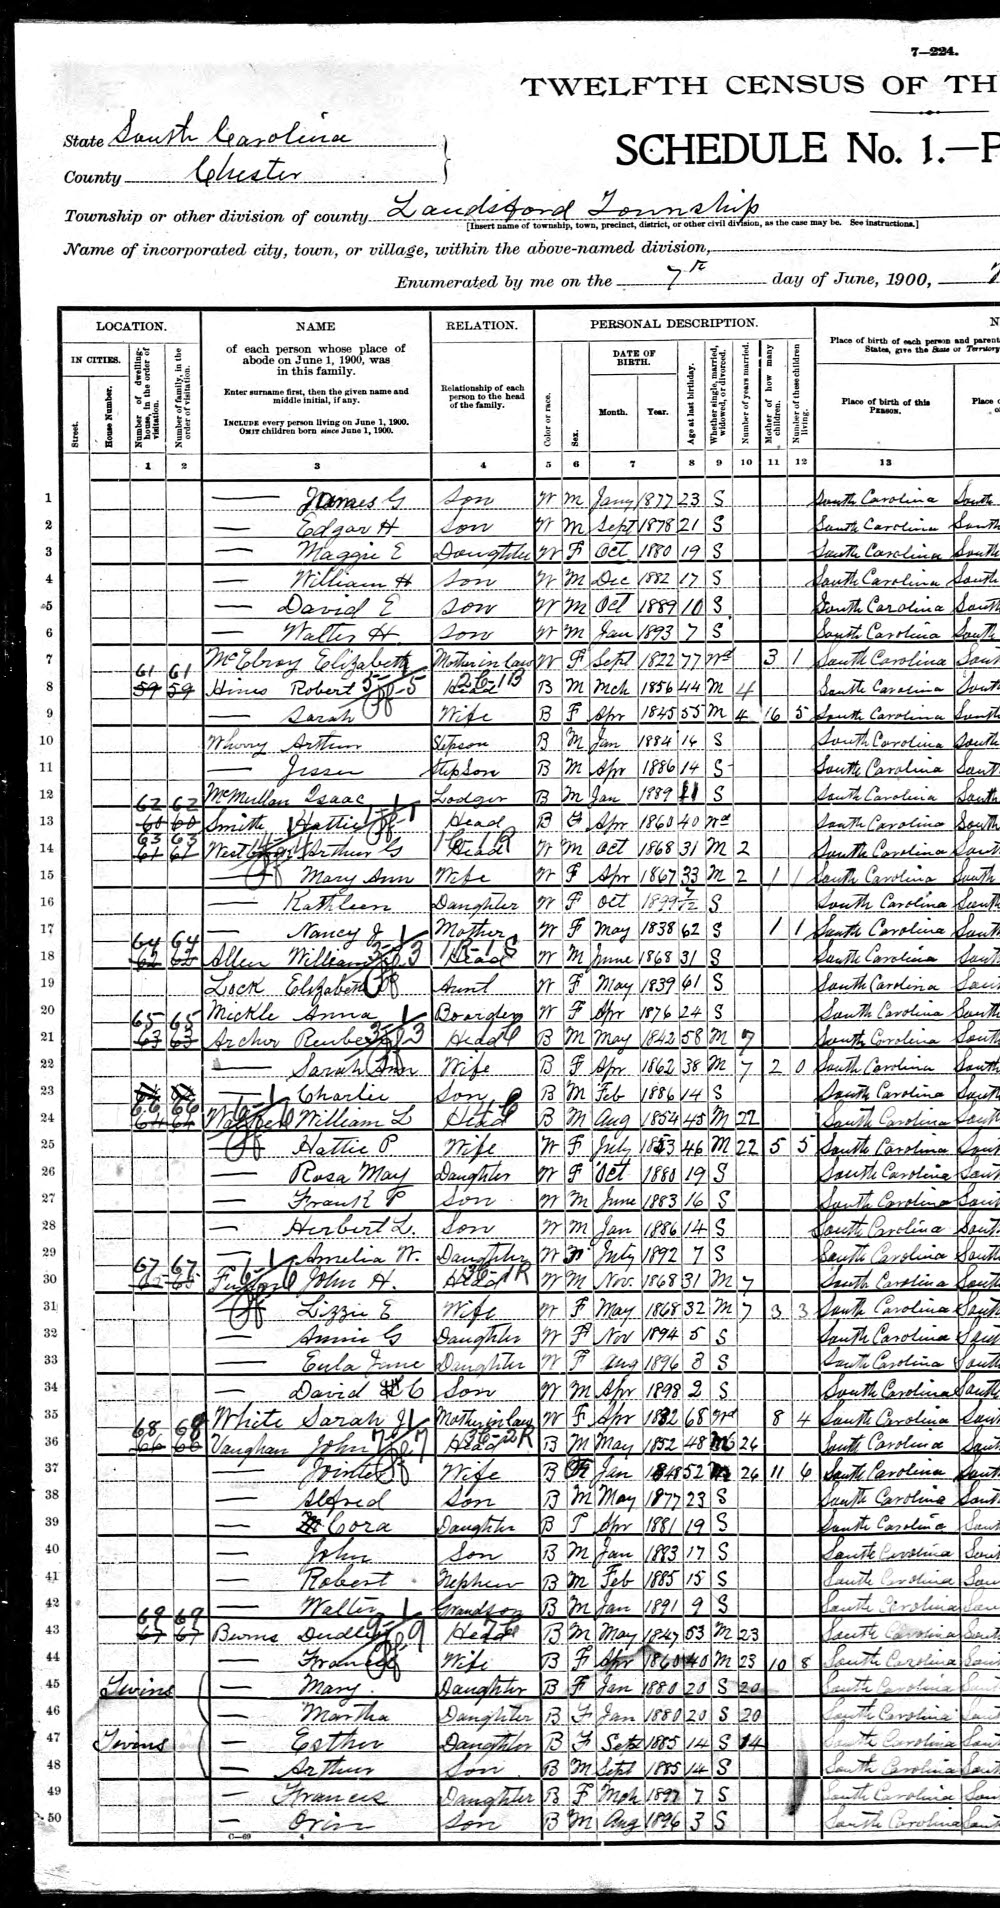 7—224.
TWELFTH CENSUS OF TH
State South Carolina
SCHEDULE No. 1.—P
County Chester
Township or other division of county Landsford Township
[Insert name of township, town, precinct, district, or other civil division, as the case may be. See instructions.]
Name of incorporated city, town, or village, within the above-named division,
Enumerated by me on the 7th day of June, 1900,
LOCATION. NAME RELATION. PERSONAL DESCRIPTION. N
IN CITIES. Street. House Number. Number of dwelling-house, in the order of visitation. Number of family, in the order of visitation.
of each person whose place of abode on June 1, 1900, was in this family.
Enter surname first, then the given name and middle initial, if any.
INCLUDE every person living on June 1, 1900. OMIT children born since June 1, 1900.
Relationship of each person to the head of the family.
Color or race. Sex. DATE OF BIRTH. Month. Year. Age at last birthday. Whether single, married, widowed, or divorced. Number of years married. Mother of how many children. Number of these children living.
Place of birth of each person and parent States, give the State or Territory
Place of birth of this PERSON. Place o
1 2 3 4 5 6 7 8 9 10 11 12 13
1 — James G Son W M Jany 1877 23 S South Carolina South
2 — Edgar H Son W M Sept 1878 21 S South Carolina South
3 — Maggie E Daughter W F Oct 1880 19 S South Carolina South
4 — William H Son W M Dec 1882 17 S South Carolina South
5 — David E Son W M Oct 1889 10 S South Carolina South
6 — Walter H Son W M Jan 1893 7 S South Carolina South
7 McElroy Elizabeth Mother in law W F Sept 1822 77 Wd 3 1 South Carolina South
8 61 61 59 59 Hines Robert Head B M Mch 1856 44 M 4 South Carolina South
9 — Sarah Wife B F Apr 1845 55 M 4 16 5 South Carolina South
10 Wherry Arthur Stepson B M Jan 1884 14 S South Carolina South
11 — Jesser StepSon B M Apr 1886 14 S South Carolina South
12 McMullan Isaac Lodger B M Jan 1889 11 S South Carolina South
13 62 62 60 60 Smith Hattie Head B F Apr 1860 40 Wd South Carolina South
14 63 63 61 61 Arthur G Head W M Oct 1868 31 M 2 South Carolina South
15 — Mary Ann Wife W F Apr 1867 33 M 2 1 1 South Carolina South
16 — Kathleen Daughter W F Oct 1899 7/12 S South Carolina South
17 — Nancy J Mother W F May 1838 62 S 1 1 South Carolina South
18 64 64 62 62 Allen William Head W M June 1868 31 S South Carolina South
19 Lock Elizabeth Aunt W F May 1839 61 S South Carolina South
20 Mickle Anna Boarder W F Apr 1876 24 S South Carolina South
21 65 65 63 63 Archer Reuben Head B M May 1842 58 M 7 South Carolina South
22 — Sarah Ann Wife B F Apr 1862 38 M 7 2 0 South Carolina South
23 — Charlie Son B M Feb 1886 14 S South Carolina South
24 66 66 64 64 William L Head B M Aug 1854 45 M 22 South Carolina South
25 — Hattie P Wife W F July 1853 46 M 22 5 5 South Carolina South
26 — Rosa May Daughter W F Oct 1880 19 S South Carolina South
27 — Frank P Son W M June 1883 16 S South Carolina South
28 — Herbert L. Son W M Jan 1886 14 S South Carolina South
29 — Amelia W. Daughter W July 1892 7 S South Carolina South
30 67 67 65 65 John H. Head W M Nov. 1868 31 M 7 South Carolina South
31 — Lizzie E Wife W F May 1868 32 M 7 3 3 South Carolina South
32 — Annie G Daughter W F Nov 1894 5 S South Carolina South
33 — Eula June Daughter W F Aug 1896 3 S South Carolina South
34 — David C Son W M Apr 1898 2 S South Carolina South
35 White Sarah J Mother in law W F Apr 1832 68 Wd 8 4 South Carolina South
36 68 68 66 66 Vaughan John Head B M May 1852 48 M 26 South Carolina South
37 — Wife B F Jan 1848 52 M 26 11 6 South Carolina South
38 — Alfred Son B M May 1877 23 S South Carolina South
39 — Cora Daughter B F Apr 1881 19 S South Carolina South
40 — John Son B M Jan 1883 17 S South Carolina South
41 — Robert Nephew B M Feb 1885 15 S South Carolina South
42 — Walter Grandson B M Jan 1891 9 S South Carolina South
43 69 69 67 67 Burns Dudley Head B M May 1847 53 M 23 South Carolina South
44 — Frances Wife B F Apr 1860 40 M 23 10 8 South Carolina South
45 Twins — Mary. Daughter B F Jan 1880 20 S 20 South Carolina South
46 — Martha Daughter B F Jan 1880 20 S 20 South Carolina South
47 Twins — Esther Daughter B F Sept 1885 14 S 14 South Carolina South
48 — Arthur Son B M Sept 1885 14 S South Carolina South
49 — Francis Daughter B F Mch 1892 7 S South Carolina South
50 — Orin Son B M Aug 1896 3 S South Carolina South